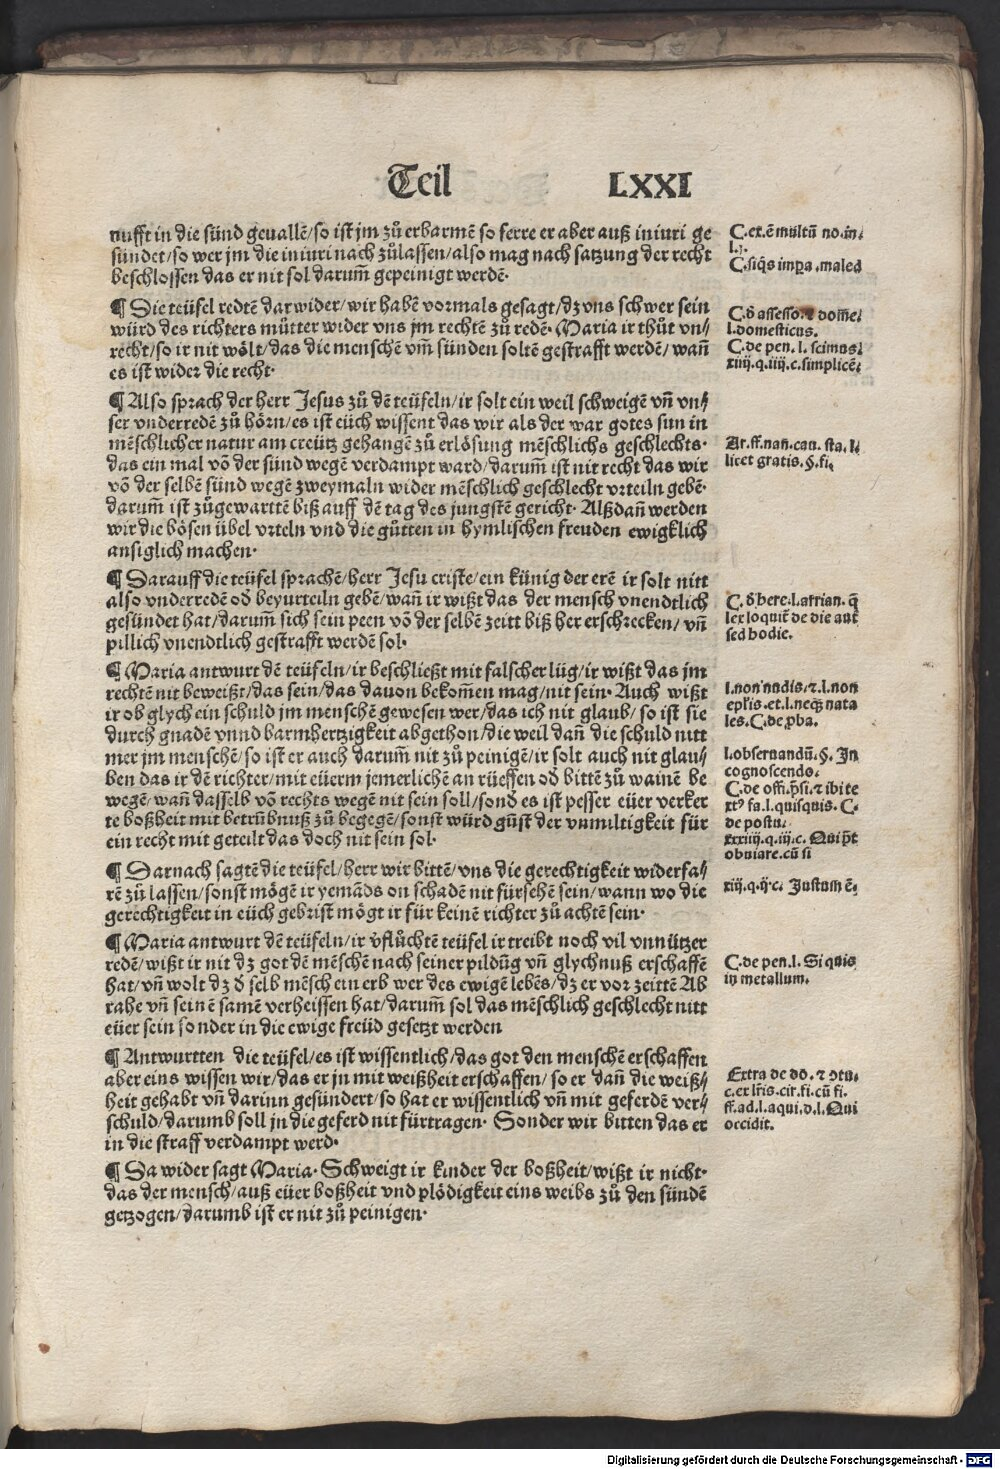 Teil LXXI
nufft in die sünd geuallē/so ist jm zů erbarmē so ferre er aber auß iniuri ge
sündet/so wer jm die iniuri nach zůlassen/also mag nach satzung der recht
beschlossen das er nit sol darum̄ gepeinigt werdē·
¶ Die teüfel redtē darwider/wir habē vormals gesagt/dz vns schwer sein
würd des richters můtter wider vns jm rechtē zů redē· Maria ir thůt vn⸗
recht/so ir nit wölt/das die menschē vm̄ sünden soltē gestrafft werdē/wañ
es ist wider die recht·
¶ Also sprach der herr Jesus zů dē teüfeln/ir solt ein weil schweigē vñ vn⸗
ser vnderredē zů hörn/es ist eüch wissent das wir als der war gotes sun in
mēschlicher natur am creütz gehangē zů erlösung mēschlichs geschlechts·
das ein mal vō der sünd wegē verdampt ward/darum̄ ist nit recht das wir
vō der selbē sünd wegē zweymaln wider mēschlich geschlecht vrteiln gebē·
darum̄ ist zůgewarttē biß auff dē tag des jungstē gericht· Alßdañ werden
wir die bösen übel vrteln vnd die gůtten in hymlischen freuden ewigklich
ansiglich machen·
¶ Darauff die teüfel sprachē/herr Jesu criste/ein künig der erē ir solt nitt
also vnderredē od̄ beyurteiln gebē/wañ ir wißt das der mensch vnendtlich
gesündet hat/darum̄ sich sein peen vō der selbē zeitt biß her erschrecken/vñ
pillich vnendtlich gestrafft werdē sol·
¶ Maria antwurt dē teüfeln/ir beschließt mit falscher lüg/ir wißt das jm
rechtē nit beweißt/das sein/das dauon bekom̄en mag/nit sein· Auch wißt
ir ob glych ein schuld jm menschē gewesen wer/das ich nit glaub/so ist sie
durch gnadē vnnd barmhertzigkeit abgethon/die weil dañ die schuld nitt
mer jm menschē/so ist er auch darum̄ nit zů peinigē/ir solt auch nit glau⸗
ben das ir dē richter/mit eüerm jemerlichē an rüeffen od̄ bittē zů wainē be
wegē/wañ dasselb vō rechts wegē nit sein soll/sond̄ es ist pesser eüer verker
te boßheit mit betrübnuß zů begegē/sonst würd gūst der vnmiltigkeit für
ein recht mit geteilt das doch nit sein sol·
¶ Darnach sagtē die teüfel/herr wir bittē/vns die gerechtigkeit widerfa⸗
rē zů lassen/sonst mögē ir yemāds on schadē nit fürsehē sein/wann wo die
gerechtigkeit in eüch gebrist mögt ir für keinē richter zů achtē sein·
¶ Maria antwurt dē teüfeln/ir v̄flůchtē teüfel ir treibt noch vil vnnützer
redē/wißt ir nit dz got dē mēschē nach seiner pildūg vñ glychnuß erschaffē
hat/vñ wolt dz d̄ selb mēsch ein erb wer des ewigē lebēs/dz er vor zeittē Ab
rahe vñ seinē samē verheissen hat/darum̄ sol das mēschlich geschlecht nitt
eüer sein sonder in die ewige freüd gesetzt werden
¶ Antwurtten die teüfel/es ist wissentlich/das got den menschē erschaffen
aber eins wissen wir/das er jn mit weißheit erschaffen/so er dañ die weiß⸗
heit gehabt vñ darinn gesündert/so hat er wissentlich vñ mit geferdē ver⸗
schuld/darumb soll jn die geferd nit fürtragen· Sonder wir bitten das er
in die straff verdampt werd·
¶ Da wider sagt Maria· Schweigt ir kinder der boßheit/wißt ir nicht·
das der mensch/auß eüer boßheit vnd plödigkeit eins weibs zů den sündē
gezogen/darumb ist er nit zů peinigen·
C. ex. ē multū no. in.
l.j.
C. siq̄s impa. maled
C. d̄ assesso. ⁊ dom̄e.
l. domesticus.
C. de pen. l. scimus.
xiiij. q. iiij. c. simplicē.
Ar. ff. nau. cau. sta. l.
licet gratis. §. fi.
C. d̄ here. l. arrian. q̄
lex loquit̄ de die aut
sed hodie.
l. non nudis. ⁊. l. non
epl̄is. et. l. neq̄ nata
les. C. de ꝓba.
l. obseruandū. §. In
cognoscendo.
C. de offi. p̄si. ⁊ ibi te
xtꝰ fa. l. quisquis. C.
de postu.
xxiiij. q. iij. c. Qui p̄t
obuiare. cū si
xiij. q. ij. c. Justum ē.
C. de pen. l. Si quis
in metallum.
Extra de do. ⁊ ↄtu.
c. ex lr̄is. cir. fi. cū fi.
ff. ad. l. aqui. d. l. Qui
occidit.
Digitalisierung gefördert durch die Deutsche Forschungsgemeinschaft - DFG